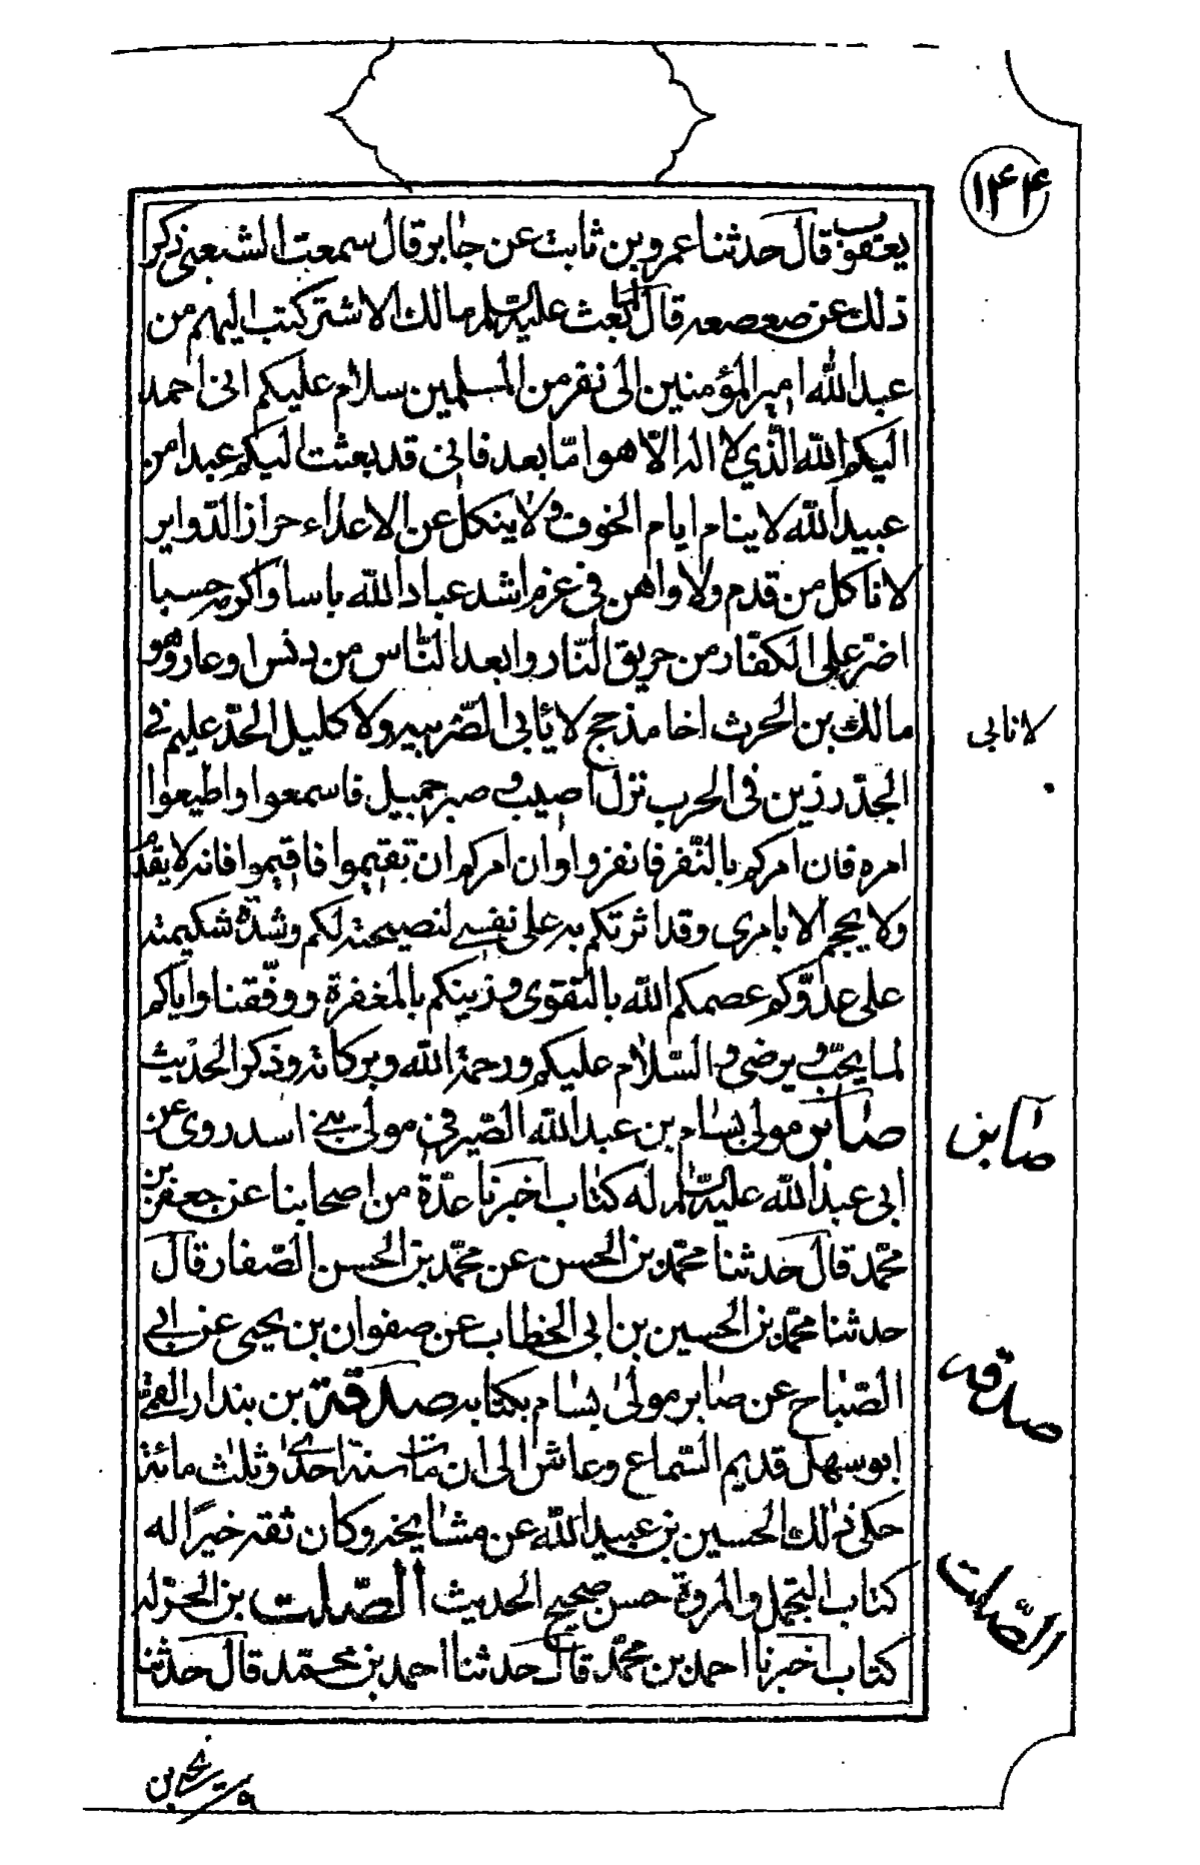 ۱۴۴
يعقوب قال حدثنا عمرو بن ثابت عن جابر قال سمعت الشعبى ذكر
ذلك عن صعصعه قال لما بعث عليه السلم مالك الاشتر كتب اليهم من
عبد الله امير المؤمنين الى نفر من المسلمين سلام عليكم انى احمد
اليكم الله الذي لا اله الّا هو امّا بعد فانى قد بعثت اليكم عبدا من
عبيد الله لا ينام ايام الخوف ولا ينكل عن الاعداء حراز الدّواير
لا ناكل من قدم ولا واهن فى عزم اشد عباد الله باسا واكرمهم حسبا
اضرّ على الكفّار من حريق النّار وابعد النّاس من دنس او عار وهو
مالك بن الحرث اخا مذحج لا يأبى الضّريبه ولا كليل الحدّ عليم فے
الجدّ رزين فى الحرب نزل اصيب و صبر جميل فاسمعوا واطيعوا
امره فان امركم بالنّفر فانفروا وان امركم ان تقيموا فاقيموا فانه لا يقدم
ولا يحجم الا بامرى وقد اثرتكم به على نفسے لنصيحته لكم وشدّة شكيمته
على عدوّكم عصمكم الله بالتقوى وزينكم بالمغفرة ووفّقنا واياكم
لما يحبّ و يرضى والسّلام عليكم ورحمة الله وبركاته وذكر الحديث
صابر مولى بسّام بن عبد الله الصّيرفى مولى بنے اسد روى عن
ابى عبد الله عليه السلم له كتاب اخبرنا عدّة من اصحابنا عن جعفر بن
محمّد قال حدثنا محمّد بن الحسن عن محمّد بن الحسن الصّفار قال
حدثنا محمّد بن الحسين بن ابى الخطاب عن صفوان بن يحيى عن ابے
الصّباح عن صابر مولى بسّام بكتابه صدقة بن بندار القمّے
ابو سهل قديم السّماع وعاش الى ان مات سنة احدى وثلث مائة
حكى ذلك الحسين بن عبيد الله عن مشايخه وكان ثقه خيرًا له
كتاب التجمل والمروة حسن صحيح الحديث الصّلت بن الحرّ له
كتاب اخبرنا احمد بن محمّد قال حدثنا احمد بن محمّد قال حدثنا
لا نابى
صابر
صدقه
الصّلت